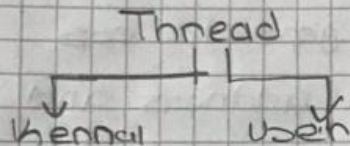 Thread
Kernal User